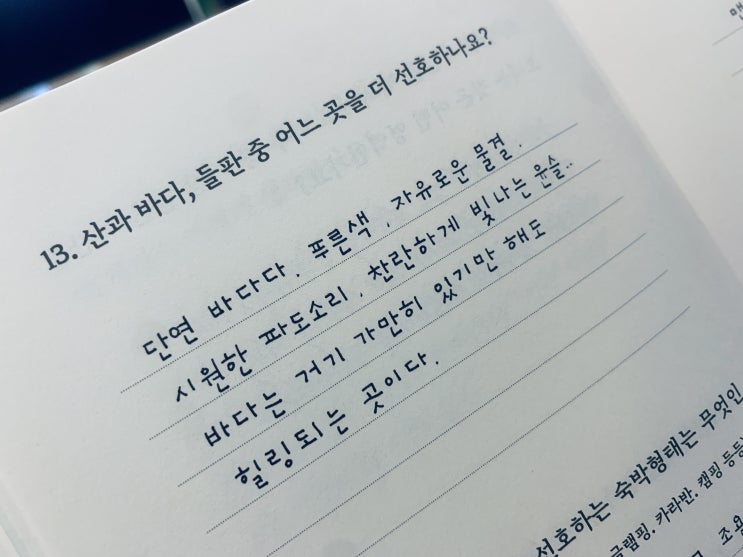 13. 산과 바다, 들판 중 어느 곳을 더 선호하나요?
단연 바다다. 푸른색, 자유로운 물결.
시원한 파도소리, 찬란하게 빛나는 윤슬..
바다는 거기 가만히 있기만 해도
힐링되는 곳이다.
선호하는 숙박형태는 무엇인
글램핑, 카라반, 캠핑 등등